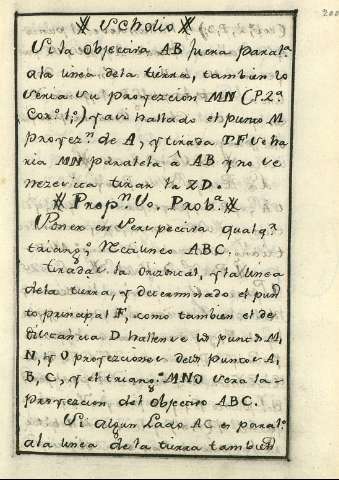 200
Scholio
Si la objectiva AB fuera paral.ª
ala linea dela tierra, tambien lo
seria su proyeccion MN (P.2ª
Cor.º 1º;) y asi hallado el punto M
proyez.n de A, y tirada TF se ha
ria MN paralela â AB y no se
nezesita tirar la ZD.
Prop.n Vo. Prob.ª
Poner en perspectiva qualq.r
triang.º Rectilineo ABC.
tiradas la Orizontal, y la linea
dela tierra, y determinado el pun
to principal F, como tambien el de
distancia D hallense los puntos M,
N, y O proyecciones delos puntos A,
B, C, y el triang.º MNO sera la
proyeccion del objectivo ABC.
Si algun Lado AC es paral.º
ala linea de la tierra tambien